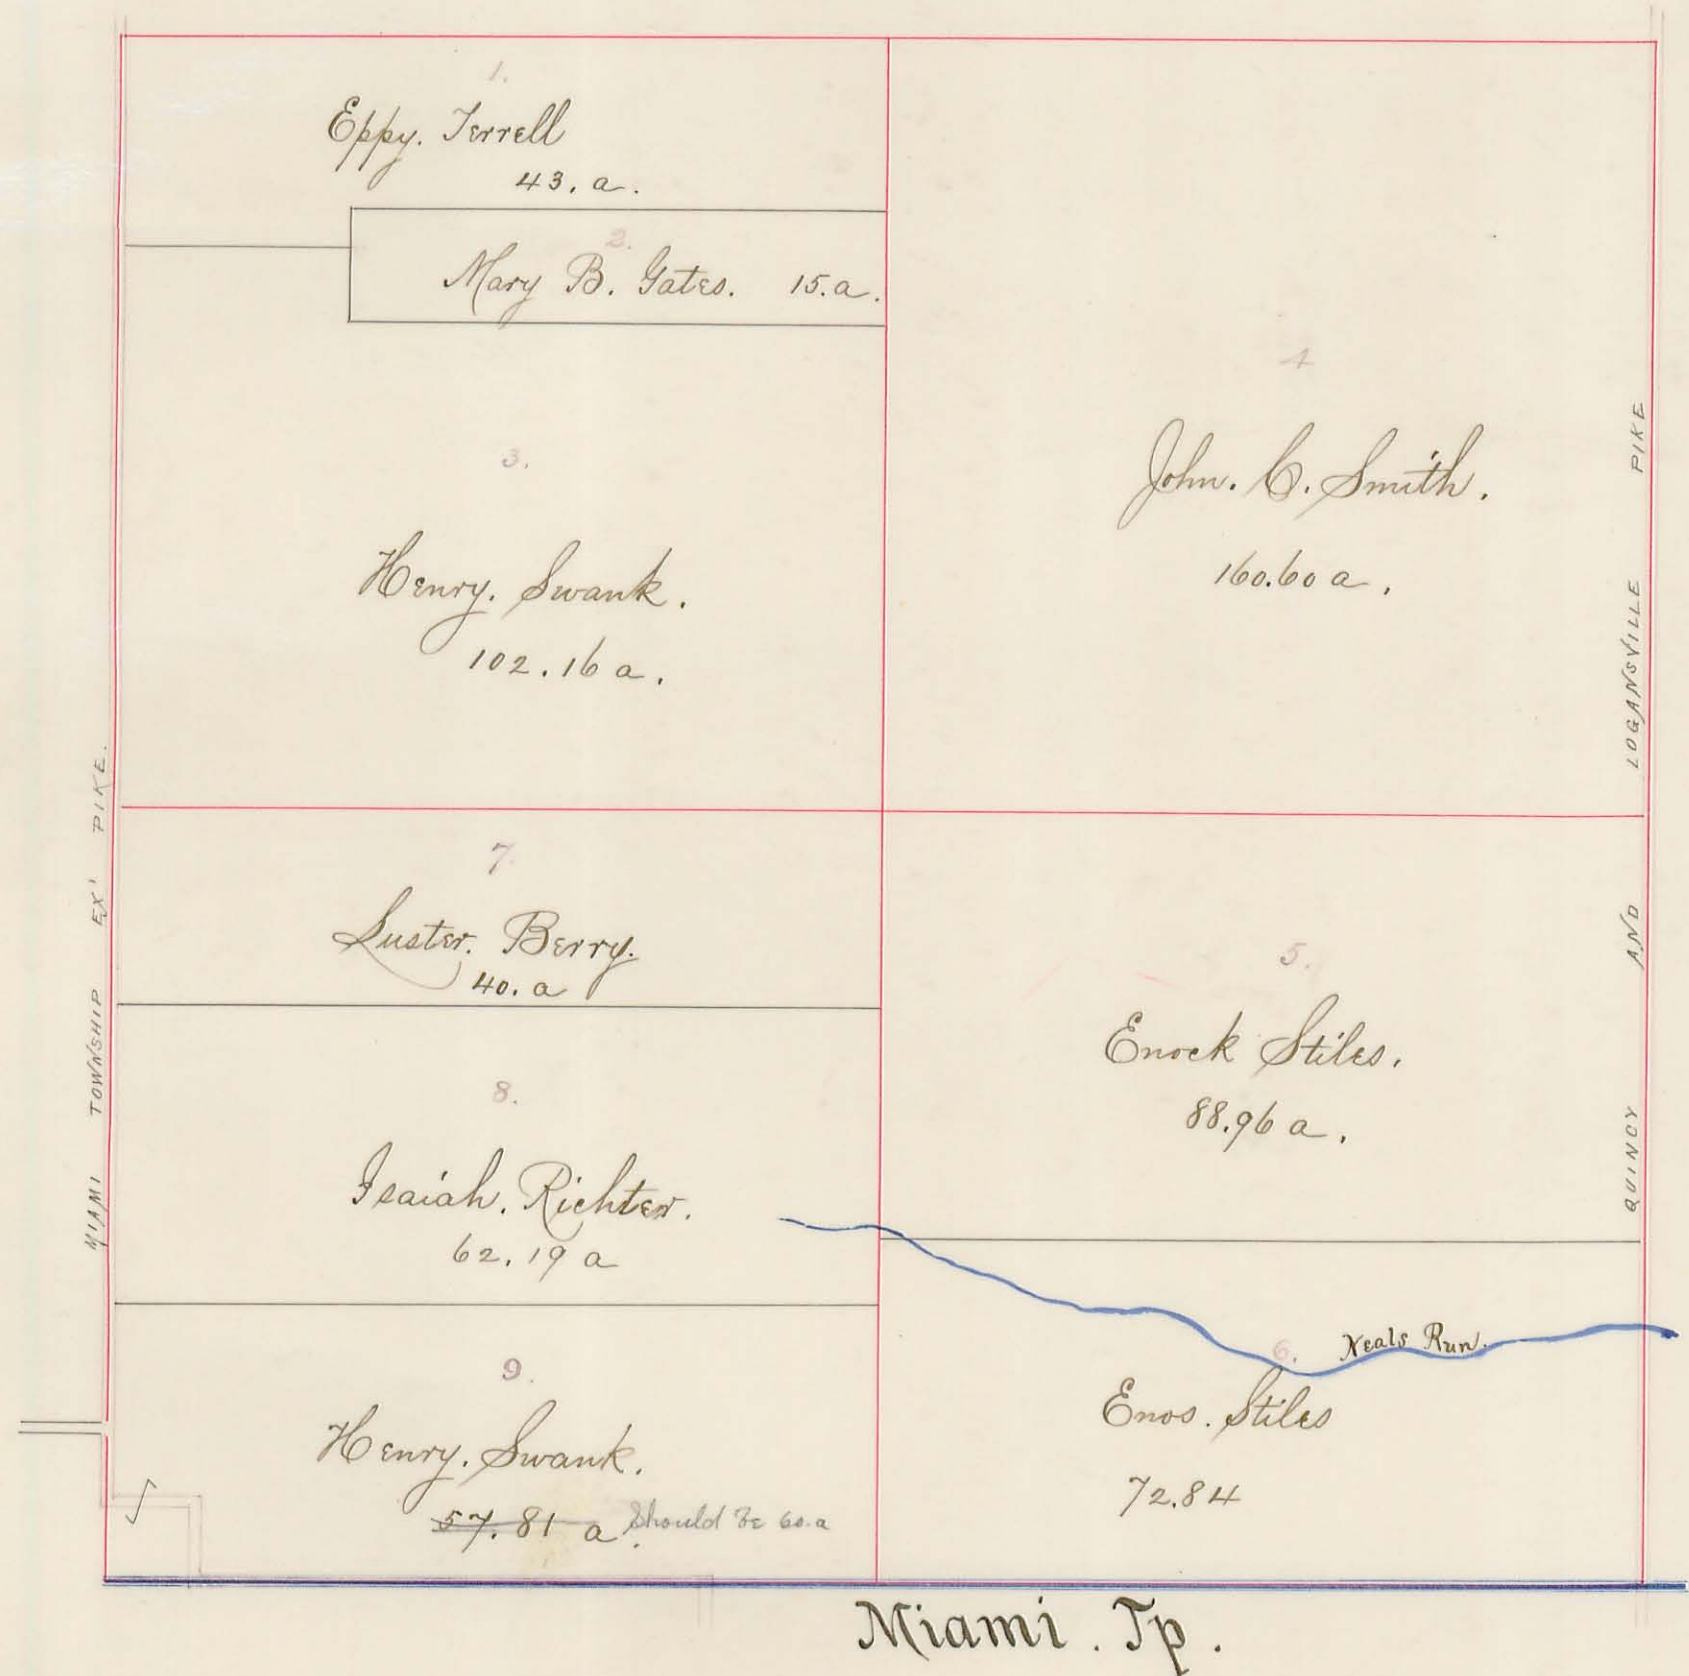 1.
Eppy. Terrell
43. a.
2.
Mary B. Gates. 15. a.
3.
Henry. Swank.
102.16 a.
4
John. C. Smith.
160.60 a.
MIAMI TOWNSHIP EX' PIKE.
QUINCY AND LOGANSVILLE PIKE
7.
Luster. Berry.
40. a
8.
Isaiah. Richter.
62.19 a
9.
Henry. Swank.
57.81 a. Should be 60.a
5.
Enock Stiles.
88.96 a.
Neals Run.
6.
Enos. Stiles
72.84
Miami. Tp.